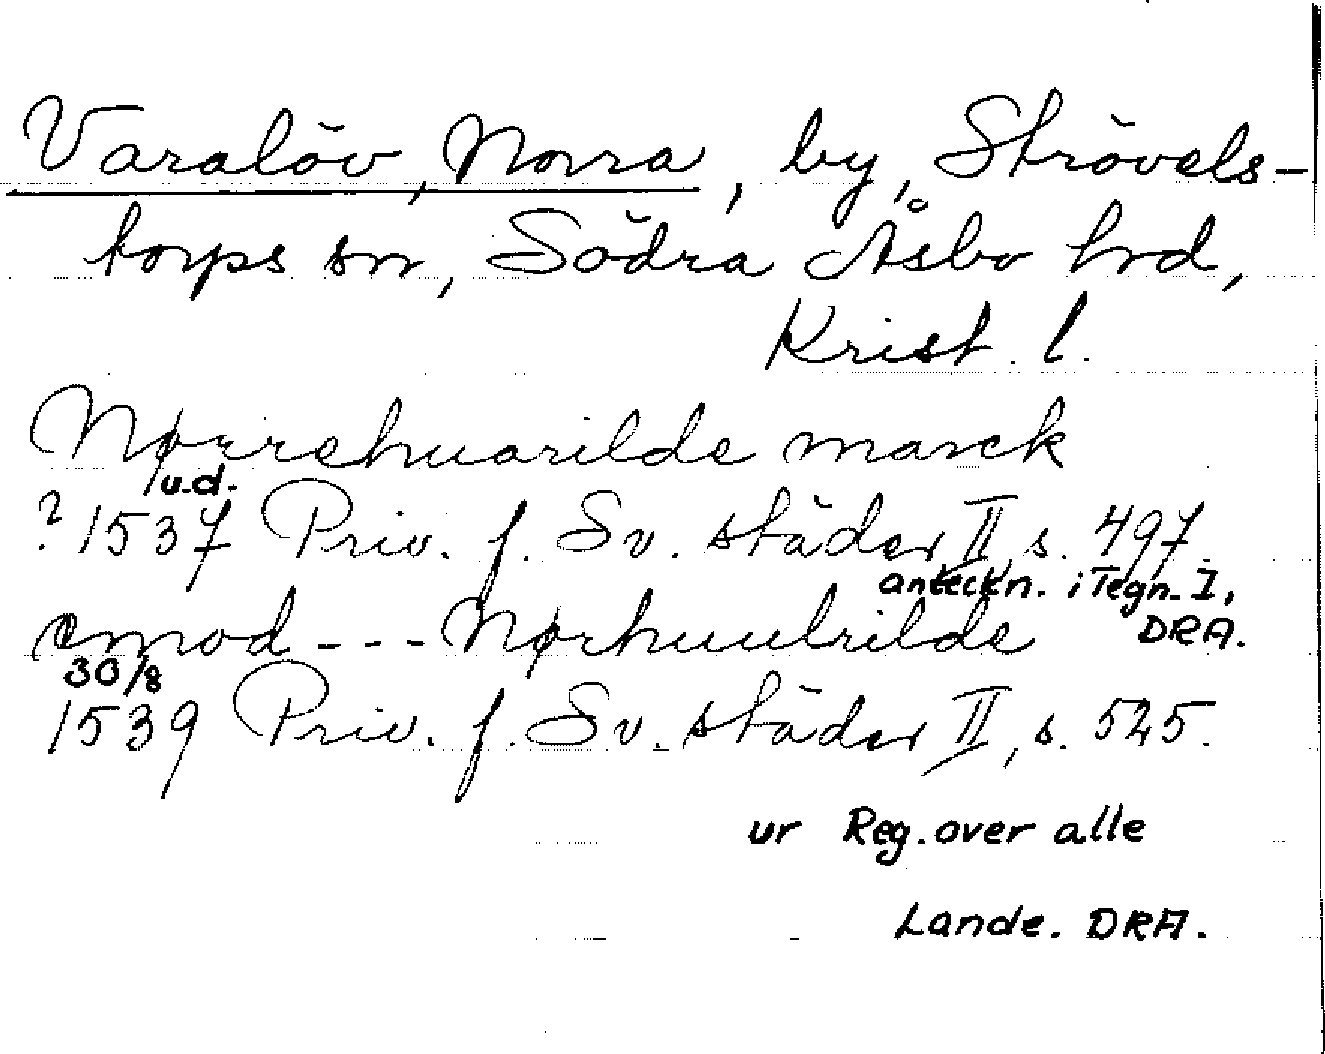 Varalöv, Norra, by, Strövels-
torps sn, Södra Åsbo hrd,
Krist. l.
Nørrehuarilde marck
u.d.
? 1537 Priv. f. Sv. städer II, s. 497.
anteckn. i Tegn. I,
DRA.
emod --- Nørhuulrilde
30/8
1539 Priv. f. Sv. städer II, s. 525.
ur Reg. over alle
Lande. DRA.